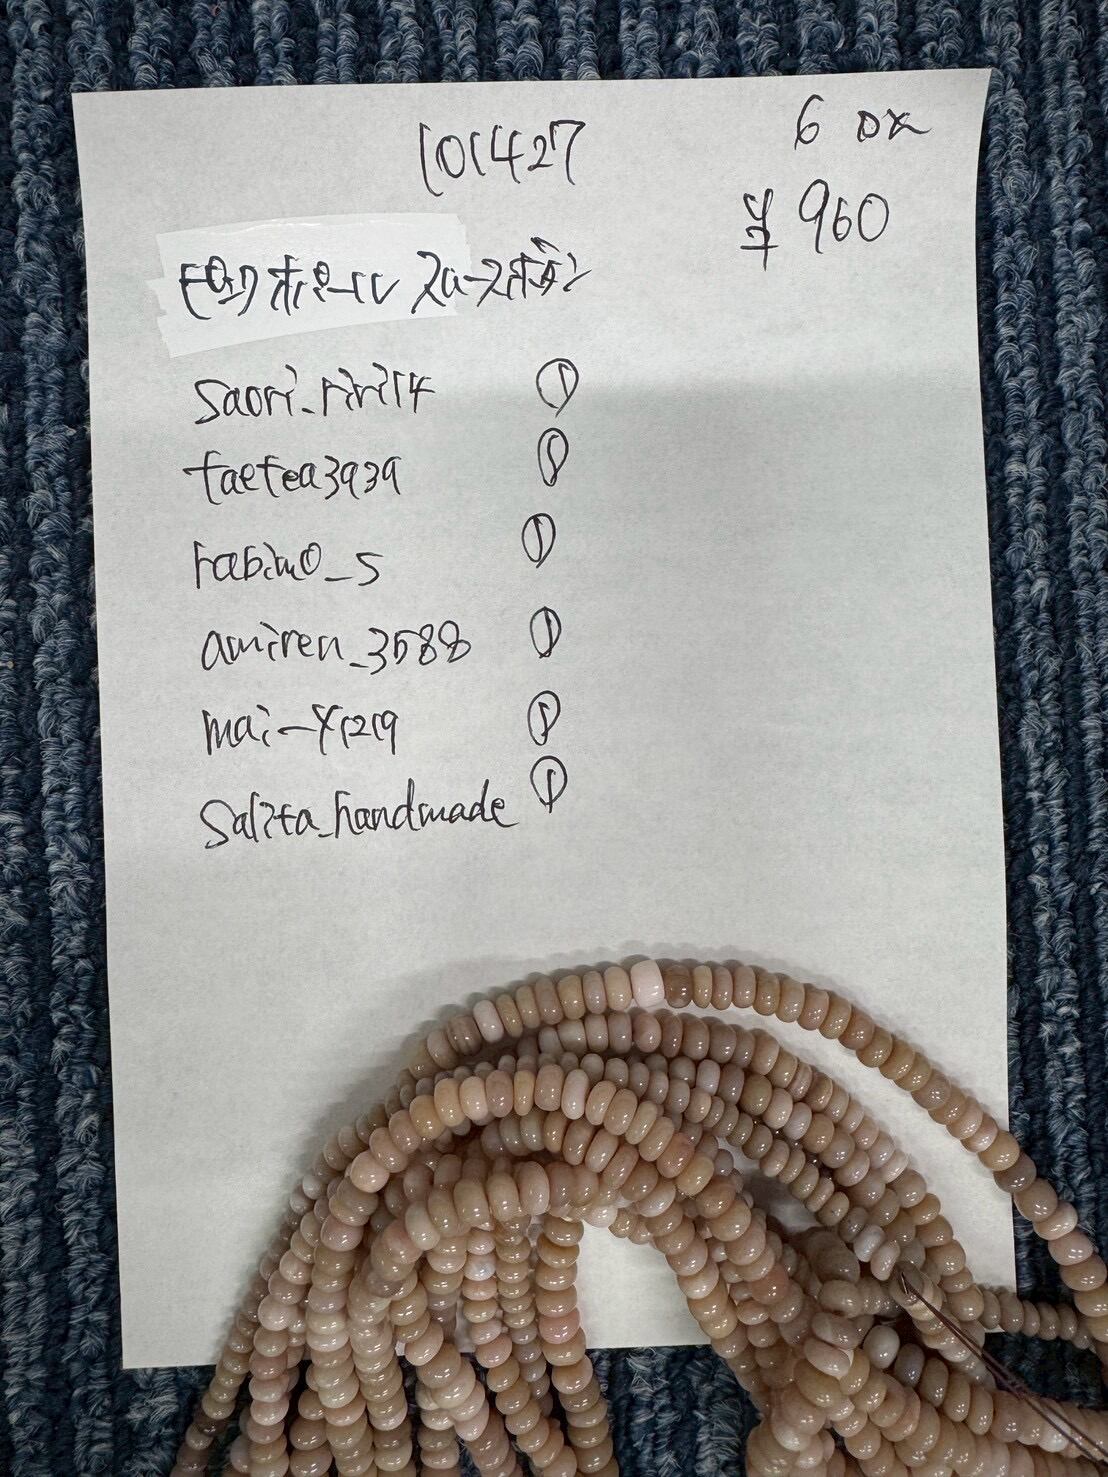 101427
6 のべ
¥960
ピンクオパール スムースボタン
saori_riri14 ①
taetea3939 ①
rabimo_s ①
amiren_3588 ①
mai-y1219 ①
salita_handmade ①